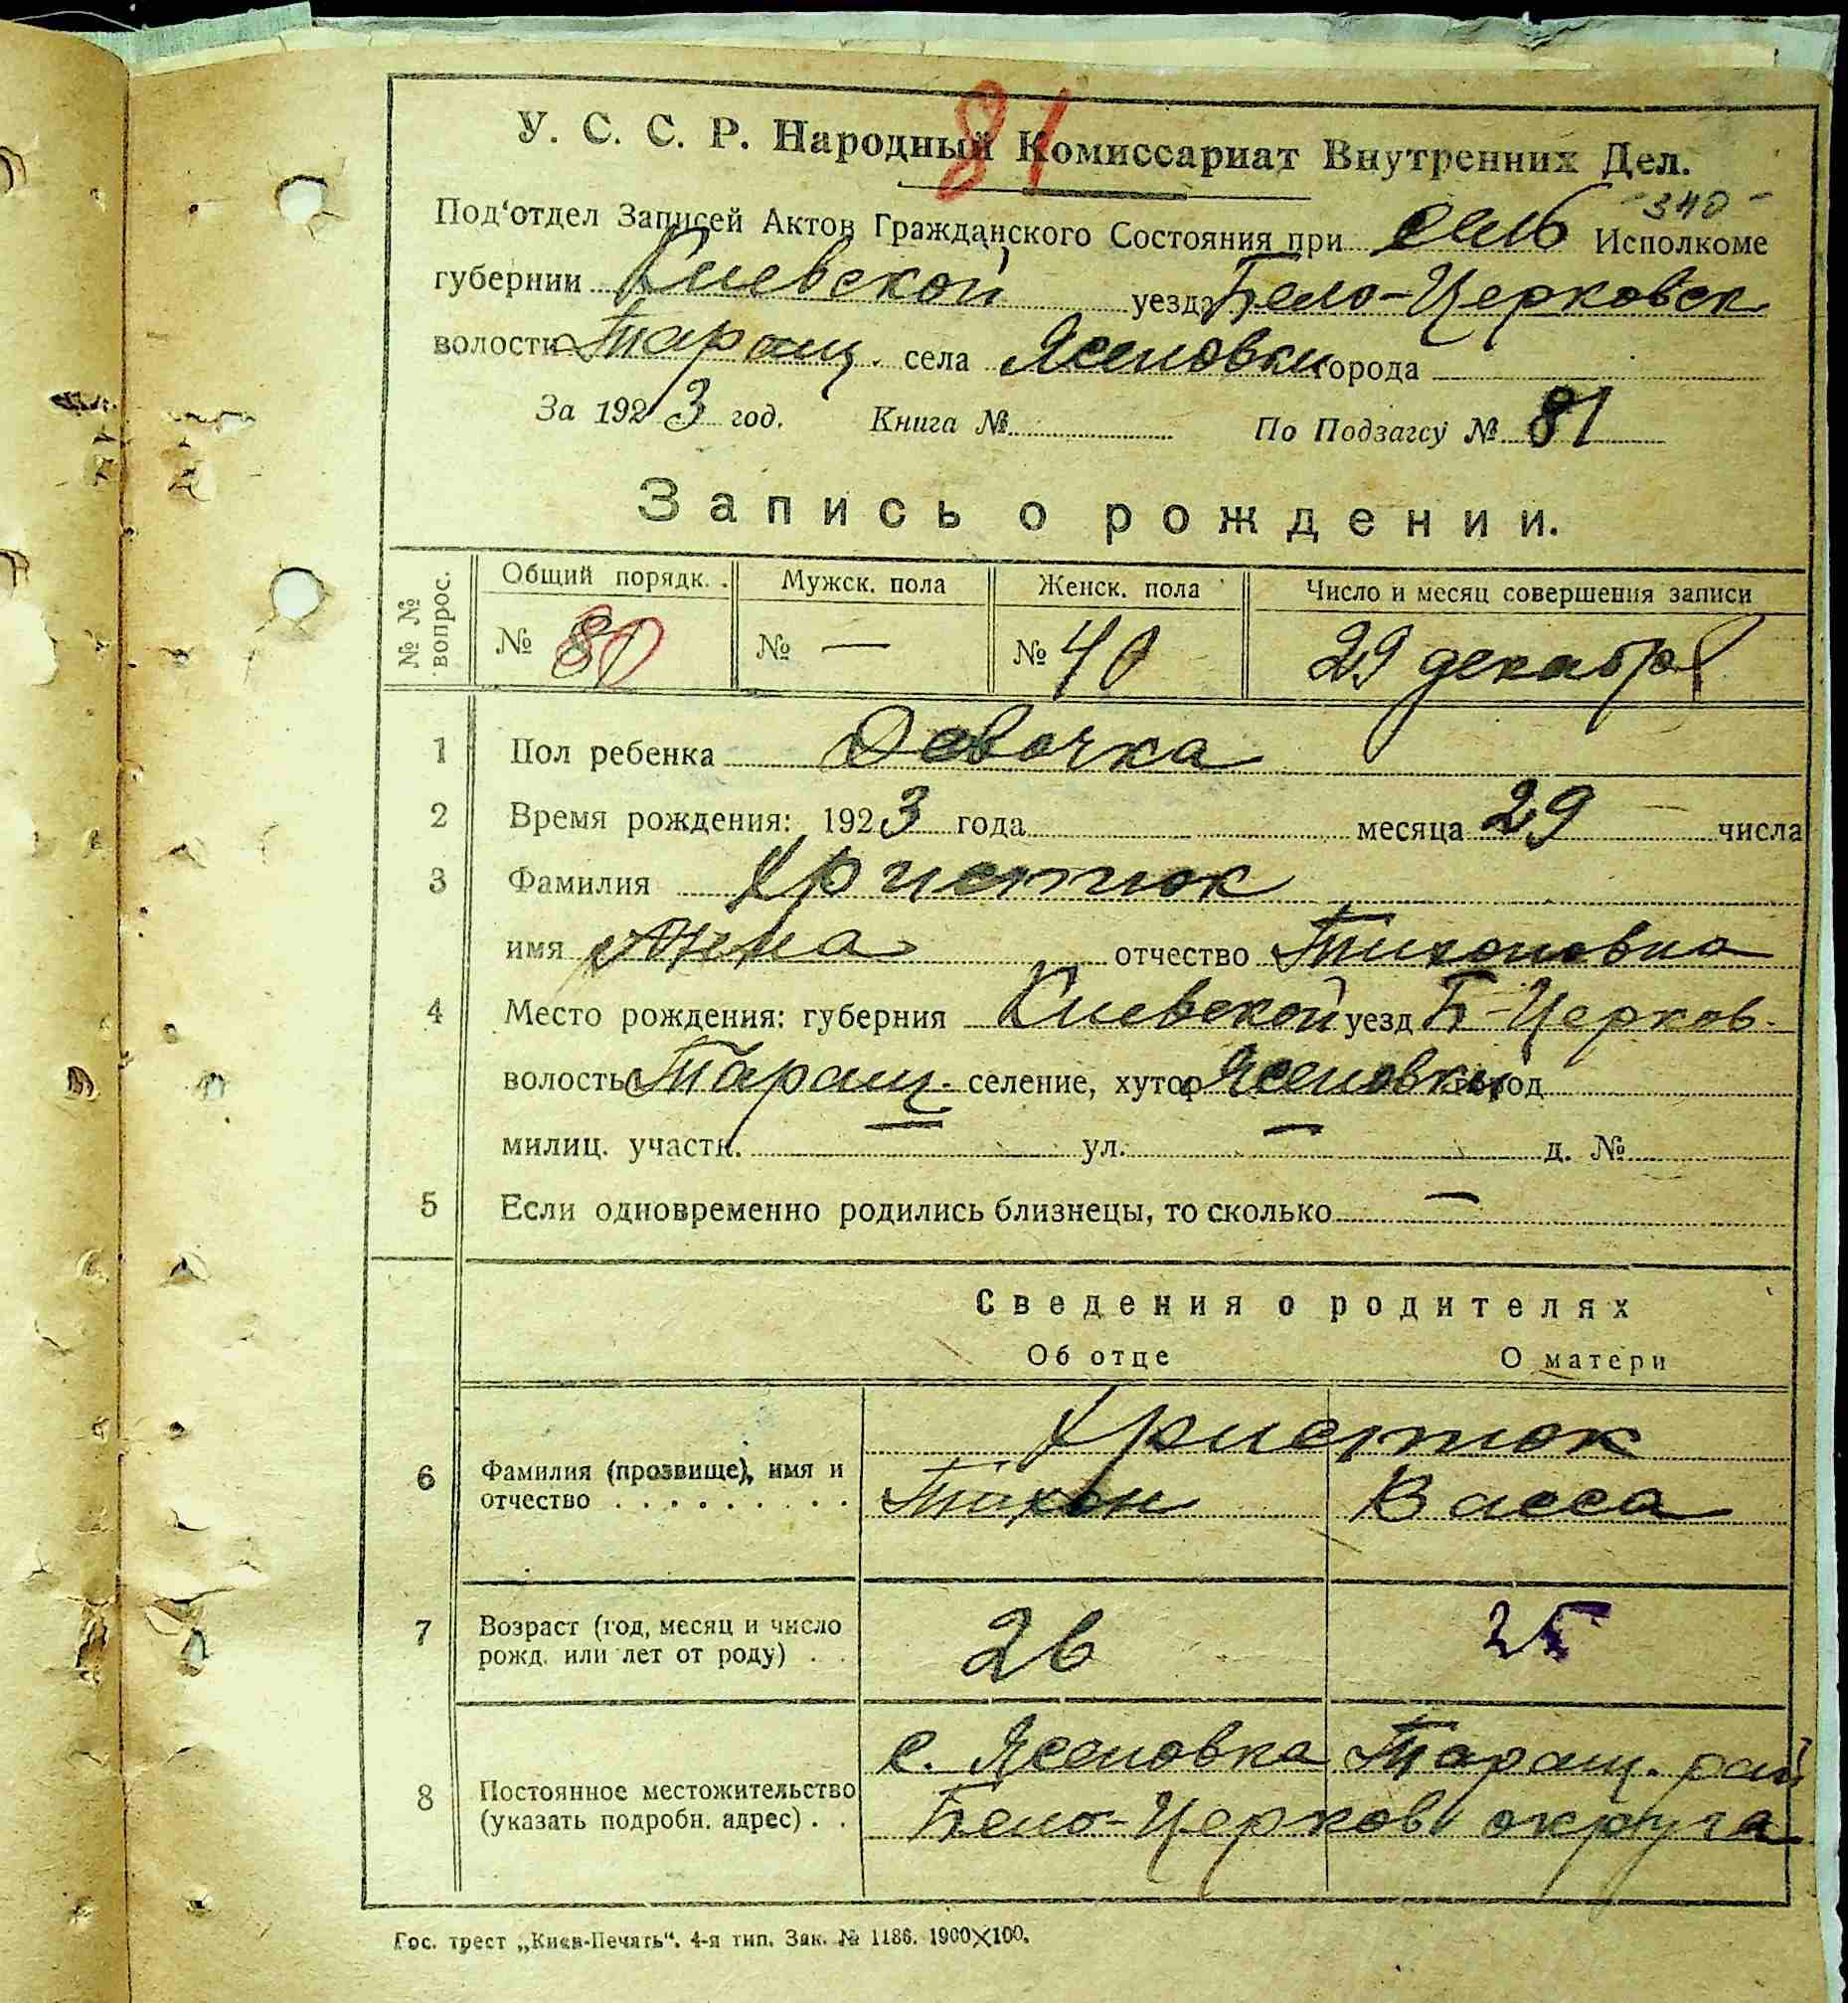 81
У. С. С. Р. Народный Комиссариат Внутренних Дел.
-340-
Под'отдел Записей Актов Гражданского Состояния при сель Исполкоме
губернии Киевской уезда Бело-Церковск
волости Таращ. села Ясеновки города
За 1923 год. Книга № По Подзагсу № 81
Запись о рождении.
№ № вопрос. Общий порядк. Мужск. пола Женск. пола Число и месяц совершения записи
№ 80 № — № 40 29 декабря
1 Пол ребенка Девочка
2 Время рождения: 1923 года месяца 29 числа
3 Фамилия Християк
имя Анна отчество Тихоновна
4 Место рождения: губерния Киевской уезд Б-Церков.
волость Таращ. селение, хутор Ясеновки город
милиц. участк. — ул. — д. №
5 Если одновременно родились близнецы, то сколько —
Сведения о родителях
Об отце О матери
6 Фамилия (прозвище), имя и отчество . . . . . . . . . Христюк
Тихон Васса
7 Возраст (год, месяц и число рожд. или лет от роду) . . 26 25
8 Постоянное местожительство (указать подробн. адрес) . . с. Ясеновка Таращ. рай
Бело-Церков округа
Гос. трест „Киев-Печать“. 4-я тип. Зак. № 1186. 1900×100.